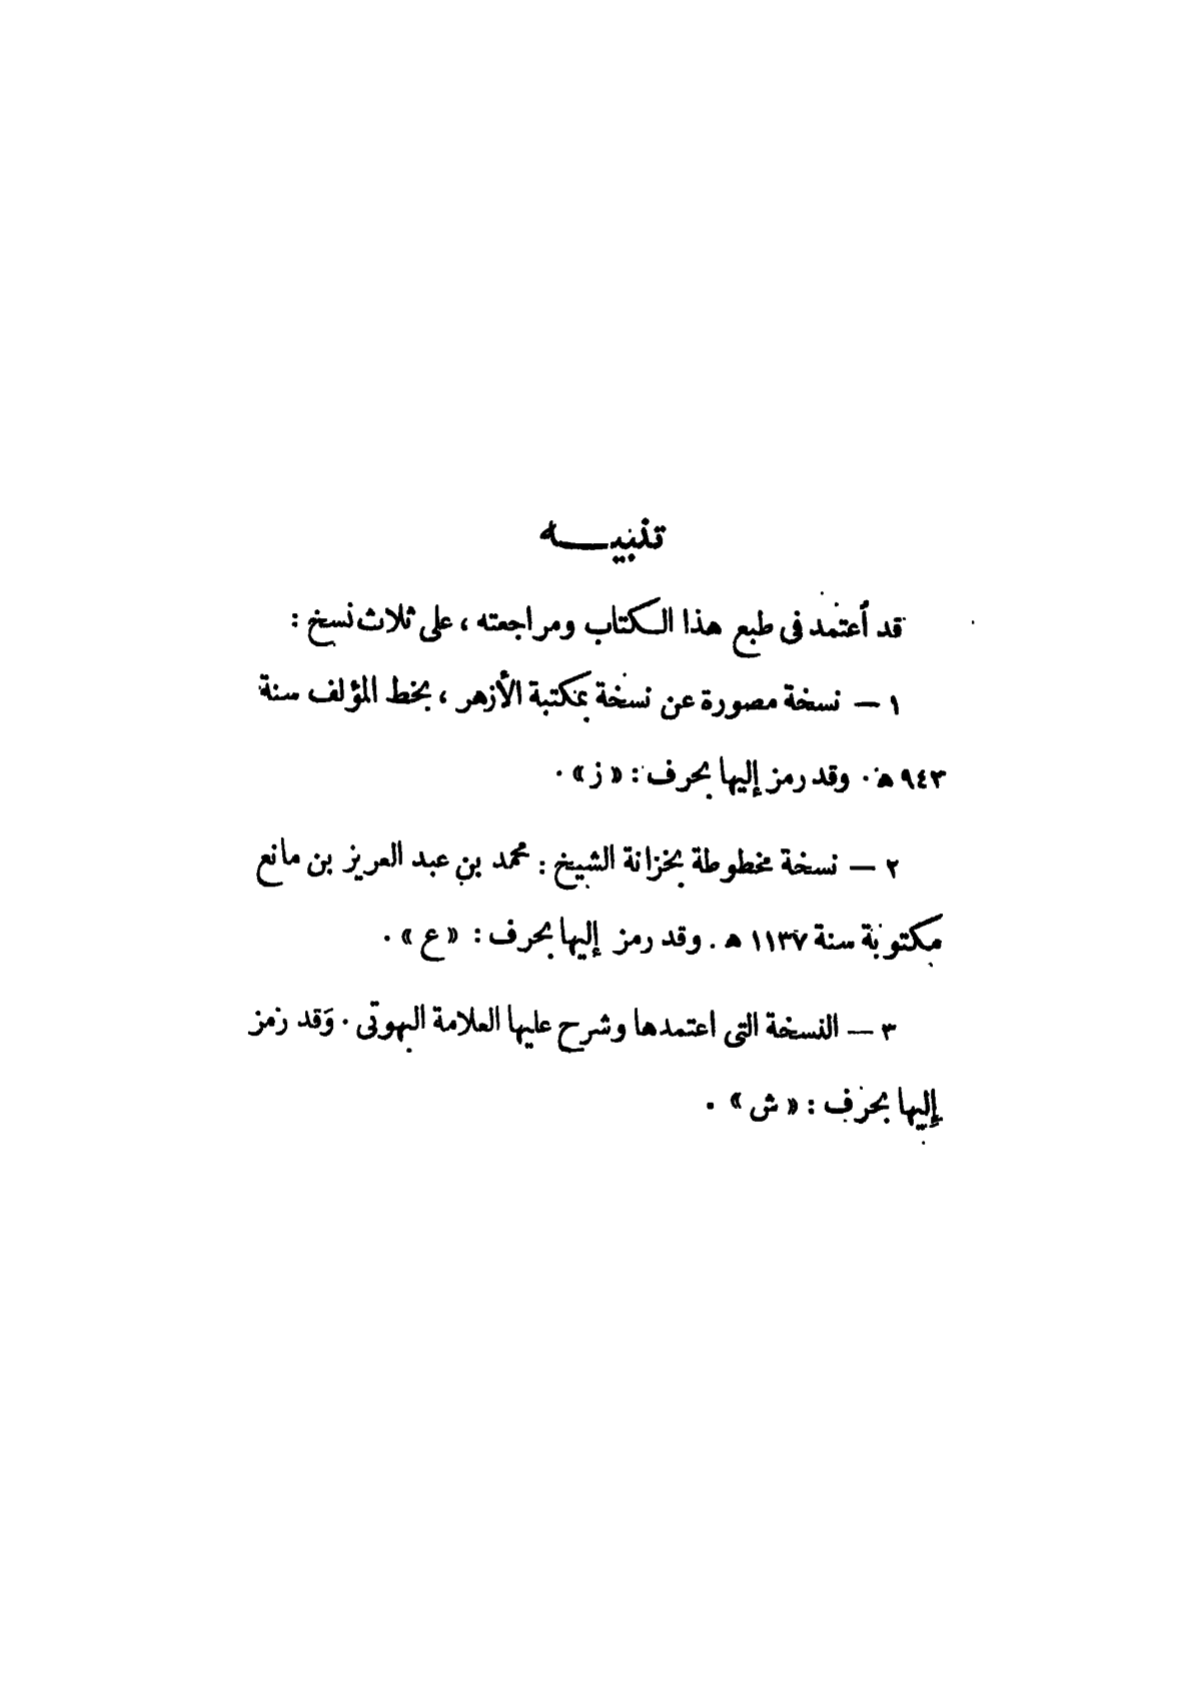 تنبيـــه
قد أعتمد فى طبع هذا الكتاب ومراجعته ، على ثلاث نسخ :
١ — نسخة مصورة عن نسخة بمكتبة الأزهر ، بخط المؤلف سنة
٩٤٣ ه . وقد رمز إليها بحرف : « ز » .
٢ — نسخة مخطوطة بخزانة الشيخ : محمد بن عبد العزيز بن مانع
مكتوبة سنة ١١٣٧ ه . وقد رمز إليها بحرف : « ع » .
٣ — النسخة التى اعتمدها وشرح عليها العلامة البهوتى . وقد رمز
إليها بحرف : « ش » .